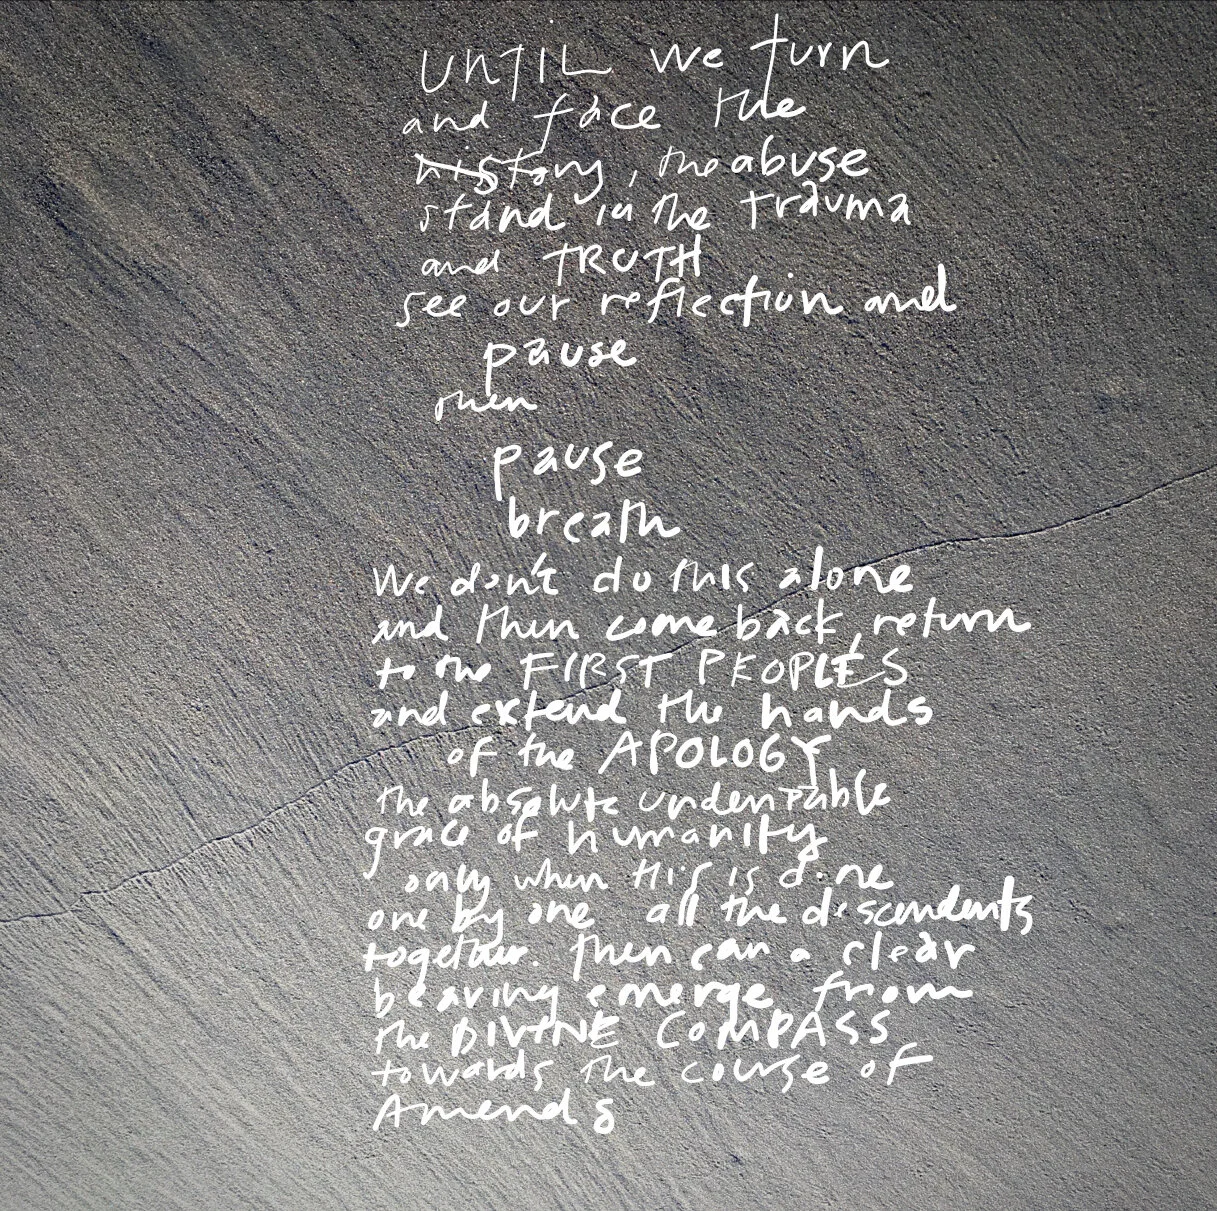 UNTIL we turn
and face the
history, the abuse
stand in the trauma
and TRUTH
see our reflection and
pause
then
pause
breath
We don't do this alone
and then come back, return
to the FIRST PEOPLES
and extend the hands
of the APOLOGY
the absolute undeniable
grace of humanity
only when this is done
one by one all the descendents
together. Then can a clear
bearing emerge from
the DIVINE COMPASS
towards the course of
Amends